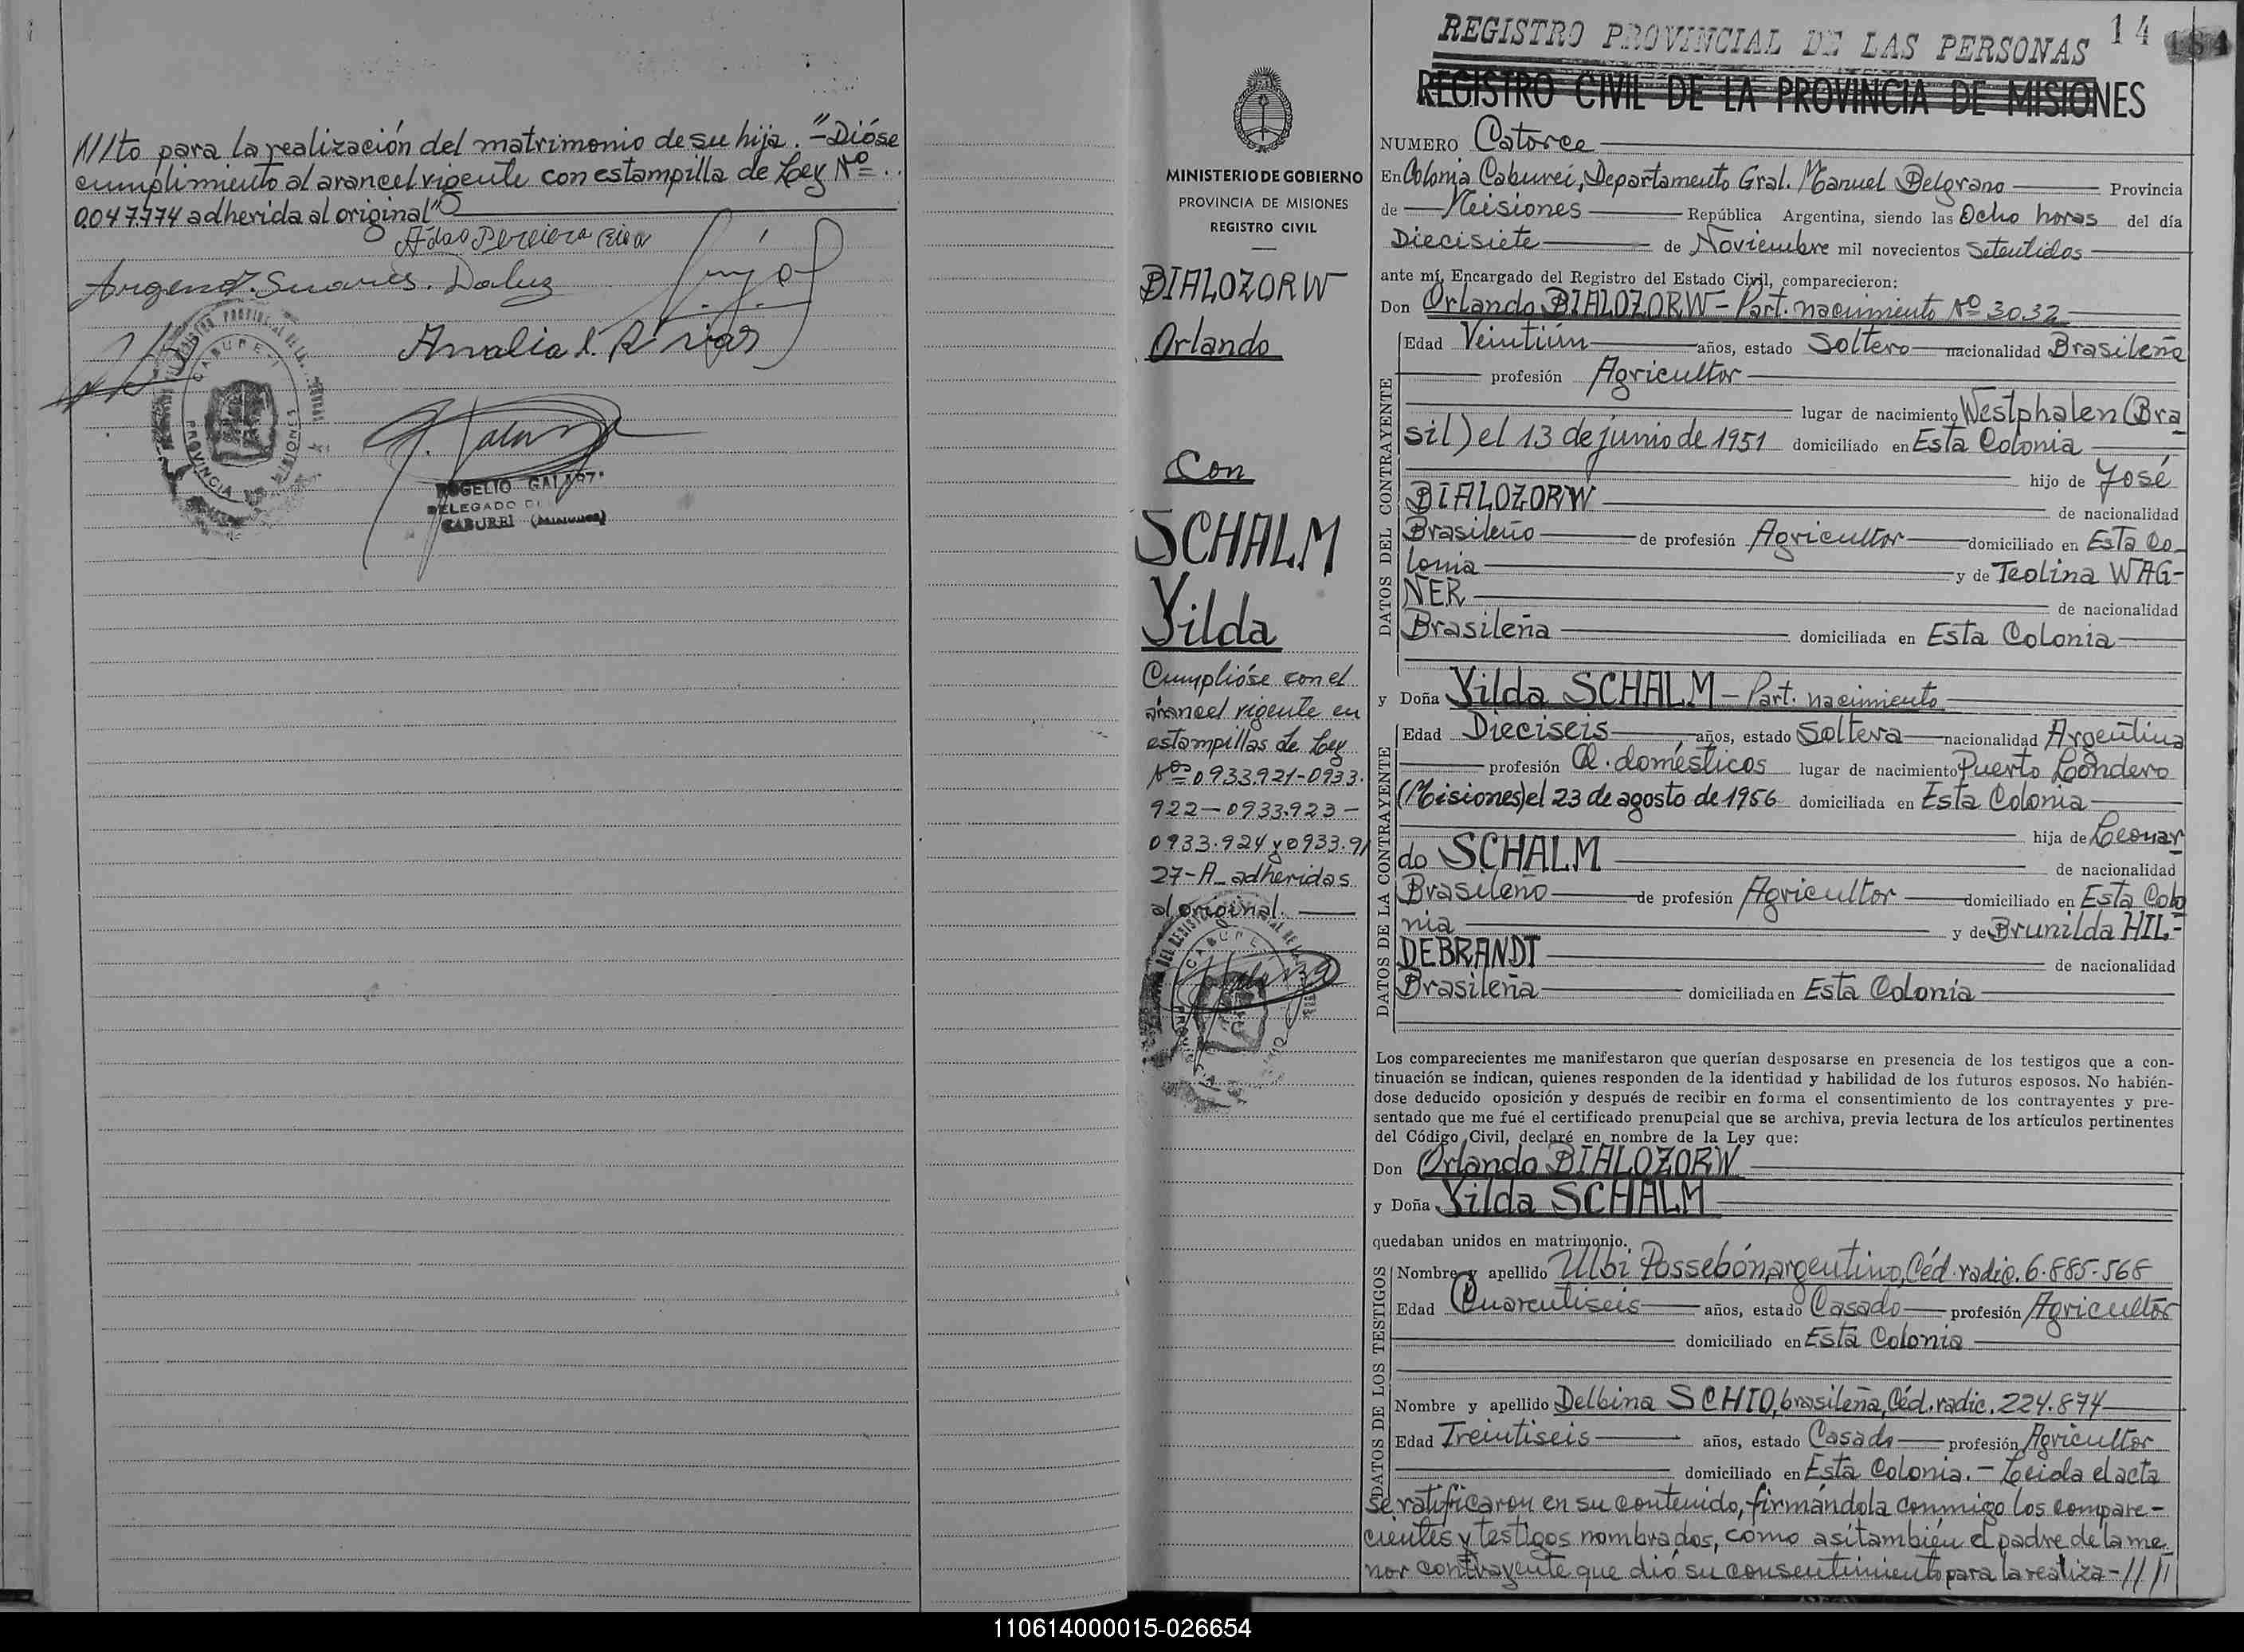 ///to para la realización del matrimonio de su hija."-Dióse
cumplimiento al arancel vigente con estampilla de Ley Nº..
0.047.774 adherida al original"
Amalia
ROGELIO
DELEGADO
CABUREI (Misiones)
CABUREI
PROVINCIA DE MISIONES
MINISTERIO DE GOBIERNO
PROVINCIA DE MISIONES
REGISTRO CIVIL
BIALOZORW
Orlando
Con
SCHALM
Yilda
Cumplióse con el
arancel vigente en
estampillas de Ley
Nos 0933.921-0933.
922-0933.923-
0933.924 y 0933.9/
27-A_ adheridas
al original.
REGISTRO PROVINCIAL DE LAS PERSONAS 14
REGISTRO CIVIL DE LA PROVINCIA DE MISIONES
NUMERO Catorce
En Colonia Caburei, Departamento Gral. Manuel Belgrano Provincia
de Misiones República Argentina, siendo las Ocho horas del día
Diecisiete de Noviembre mil novecientos Setentidos
ante mí, Encargado del Registro del Estado Civil, comparecieron:
Don Orlando BIALOZORW - Part. nacimiento Nº 3032
DATOS DEL CONTRAYENTE
Edad Veintiún años, estado Soltero nacionalidad Brasileña
profesión Agricultor
lugar de nacimiento Westphalen (Bra
sil) el 13 de junio de 1951 domiciliado en Esta Colonia
hijo de José
BIALOZORW de nacionalidad
Brasileño de profesión Agricultor domiciliado en Esta Co-
lonia y de Teolina WAG-
NER de nacionalidad
Brasileña domiciliada en Esta Colonia
y Doña Yilda SCHALM - Part. nacimiento
DATOS DE LA CONTRAYENTE
Edad Dieciseis años, estado Soltera nacionalidad Argentina
profesión Q. domésticos lugar de nacimiento Puerto Londero
(Misiones) el 23 de agosto de 1956 domiciliada en Esta Colonia
hija de Leonar
do SCHALM de nacionalidad
Brasileño de profesión Agricultor domiciliado en Esta Colo
nia y de Brunilda HIL-
DEBRANDT de nacionalidad
Brasileña domiciliada en Esta Colonia
Los comparecientes me manifestaron que querían desposarse en presencia de los testigos que a con-
tinuación se indican, quienes responden de la identidad y habilidad de los futuros esposos. No habién-
dose deducido oposición y después de recibir en forma el consentimiento de los contrayentes y pre-
sentado que me fué el certificado prenupcial que se archiva, previa lectura de los artículos pertinentes
del Código Civil, declaré en nombre de la Ley que:
Don Orlando BIALOZORW
y Doña Yilda SCHALM
quedaban unidos en matrimonio.
DATOS DE LOS TESTIGOS
Nombre y apellido Ulbi Possebón, argentino, Céd. radic. 6.885.568
Edad Cuarentiseis años, estado Casado profesión Agricultor
domiciliado en Esta Colonia
DATOS DE LOS TESTIGOS
Nombre y apellido Delbina SCHIO, brasileña, Céd. radic. 224.874
Edad Treintiseis años, estado Casado profesión Agricultor
domiciliado en Esta Colonia.- Leida el acta
se ratificaron en su contenido, firmándola conmigo los compare-
cientes y testigos nombrados, como asi también el padre de la me
nor contrayente que dió su consentimiento para la realiza-////
110614000015-026654